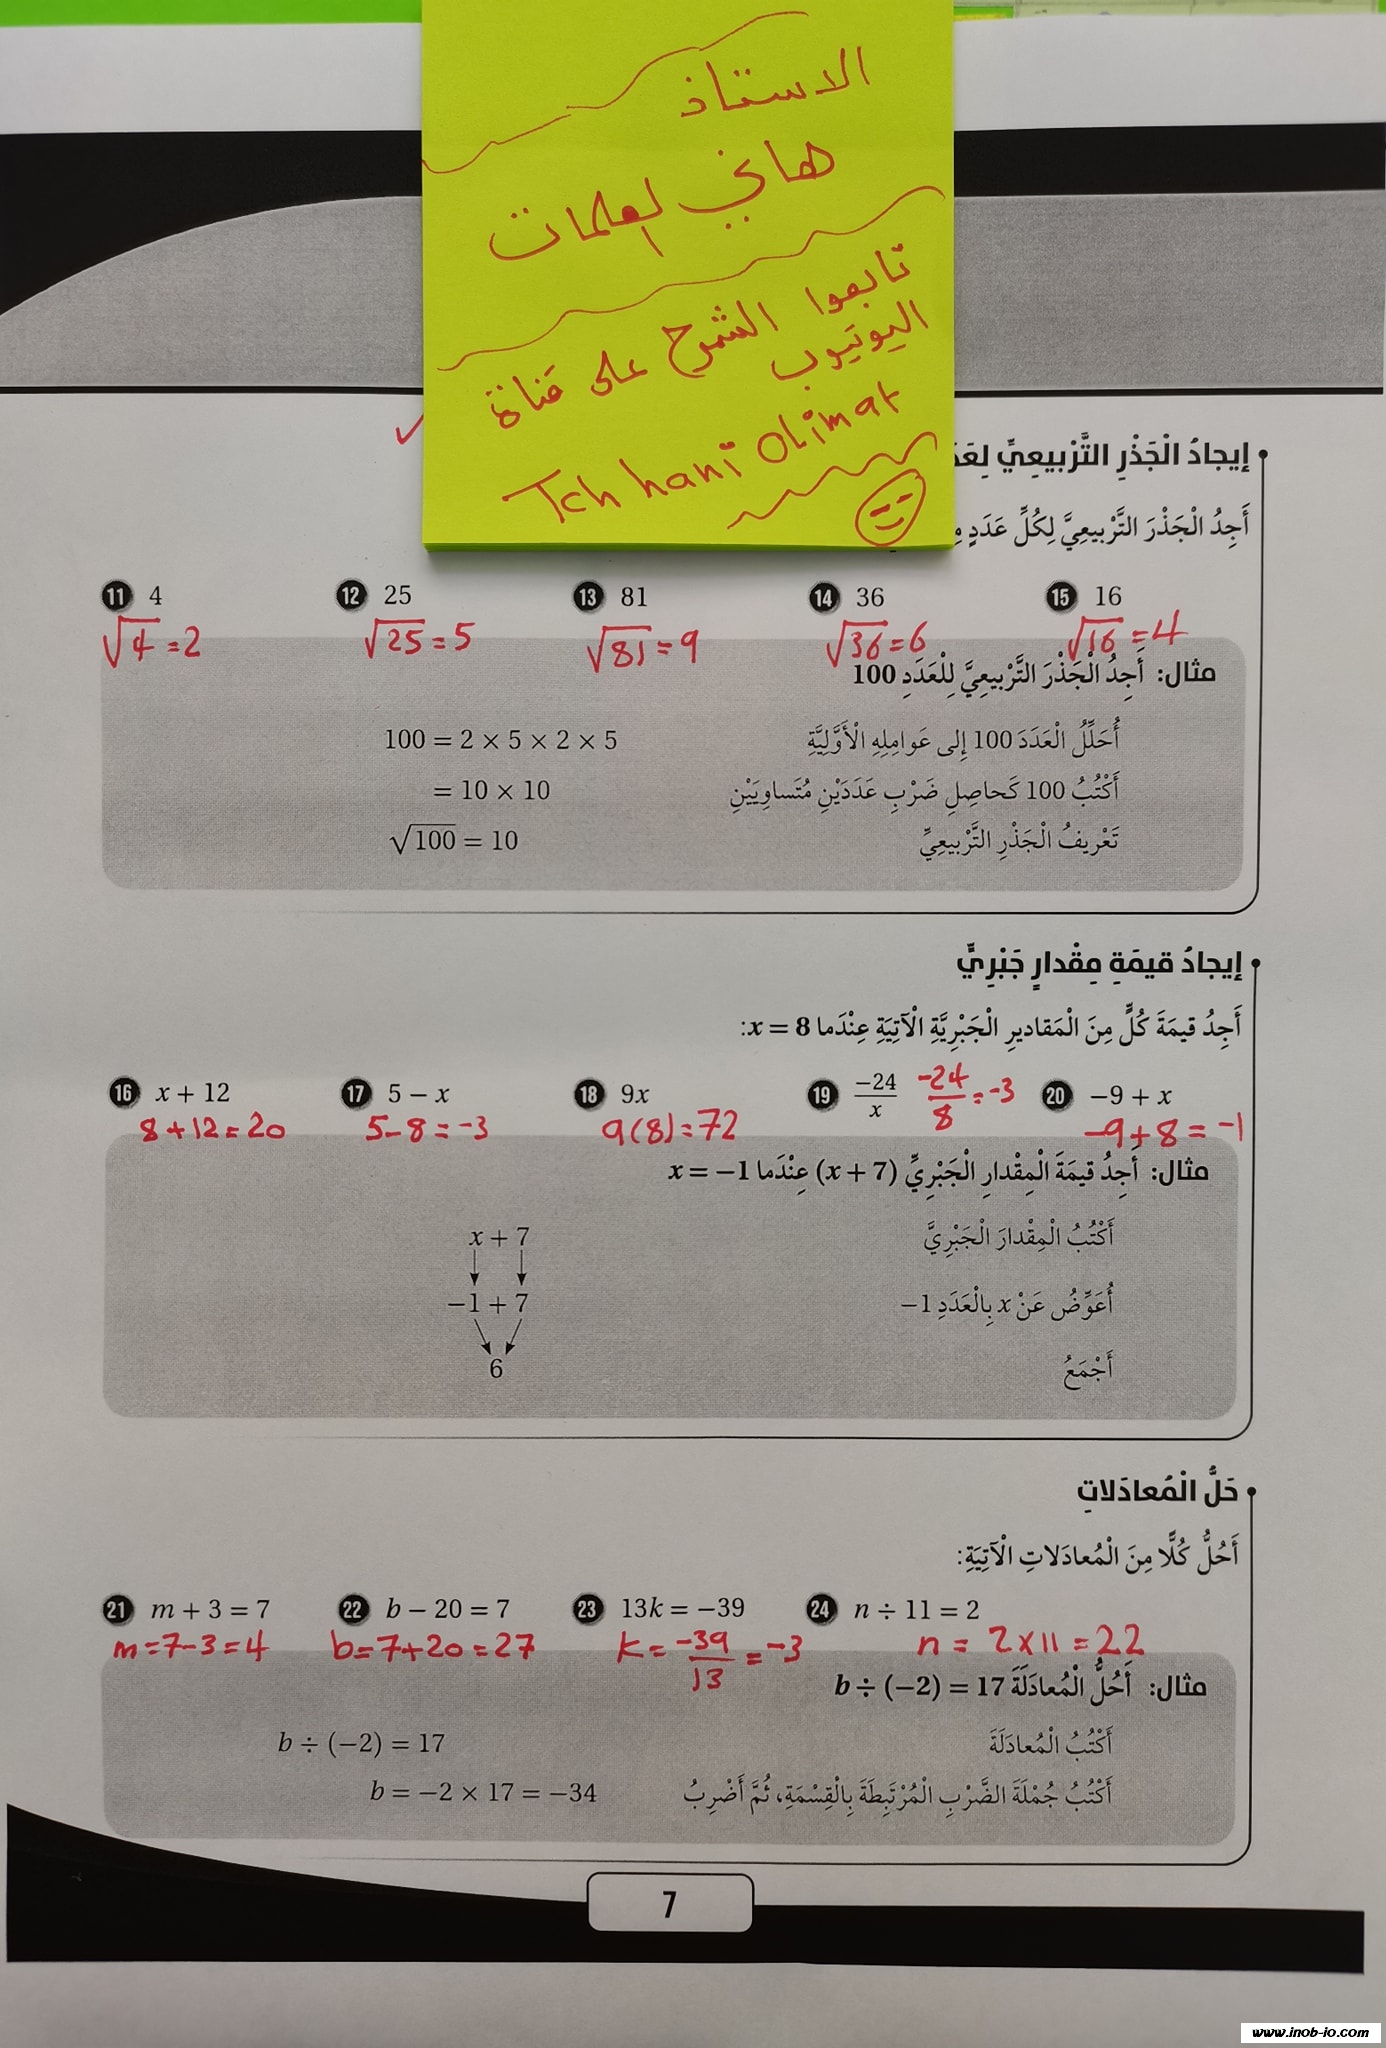 الاستاذ
هاني العلمات
تابعوا الشرح على قناة
اليوتيوب
Tch hani Olimat
إيجادُ الْجَذْرِ التَّرْبيعِيِّ
أَجِدُ الْجَذْرَ التَّرْبيعِيَّ لِكُلِّ عَدَدٍ
11 4 12 25 13 81 14 36 15 16
√4 = 2 √25 = 5 √81 = 9 √36 = 6 √16 = 4
مثال: أَجِدُ الْجَذْرَ التَّرْبيعِيَّ لِلْعَدَدِ 100
أُحَلِّلُ الْعَدَدَ 100 إِلى عَوامِلِهِ الْأَوَّلِيَّةِ 100 = 2 × 5 × 2 × 5
أَكْتُبُ 100 كَحاصِلِ ضَرْبِ عَدَدَيْنِ مُتَساوِيَيْنِ = 10 × 10
تَعْريفُ الْجَذْرِ التَّرْبيعِيِّ √100 = 10
إيجادُ قيمَةِ مِقْدارٍ جَبْرِيٍّ
أَجِدُ قيمَةَ كُلٍّ مِنَ الْمَقاديرِ الْجَبْرِيَّةِ الْآتِيَةِ عِنْدَما x = 8:
16 x + 12 17 5 − x 18 9x 19 −24/x -24/8 = -3 20 −9 + x
8 + 12 = 20 5 - 8 = -3 9(8) = 72 -9 + 8 = -1
مثال: أَجِدُ قيمَةَ الْمِقْدارِ الْجَبْرِيِّ (x + 7) عِنْدَما x = −1
أَكْتُبُ الْمِقْدارَ الْجَبْرِيَّ x + 7
أُعَوِّضُ عَنْ x بِالْعَدَدِ −1 −1 + 7
أَجْمَعُ 6
حَلُّ الْمُعادَلاتِ
أَحُلُّ كُلًّا مِنَ الْمُعادَلاتِ الْآتِيَةِ:
21 m + 3 = 7 22 b − 20 = 7 23 13k = −39 24 n ÷ 11 = 2
m = 7 - 3 = 4 b = 7 + 20 = 27 k = -39/13 = -3 n = 2 × 11 = 22
مثال: أَحُلُّ الْمُعادَلَةَ b ÷ (−2) = 17
أَكْتُبُ الْمُعادَلَةَ b ÷ (−2) = 17
أَكْتُبُ جُمْلَةَ الضَّرْبِ الْمُرْتَبِطَةَ بِالْقِسْمَةِ، ثُمَّ أَضْرِبُ b = −2 × 17 = −34
7
www.inob-io.com